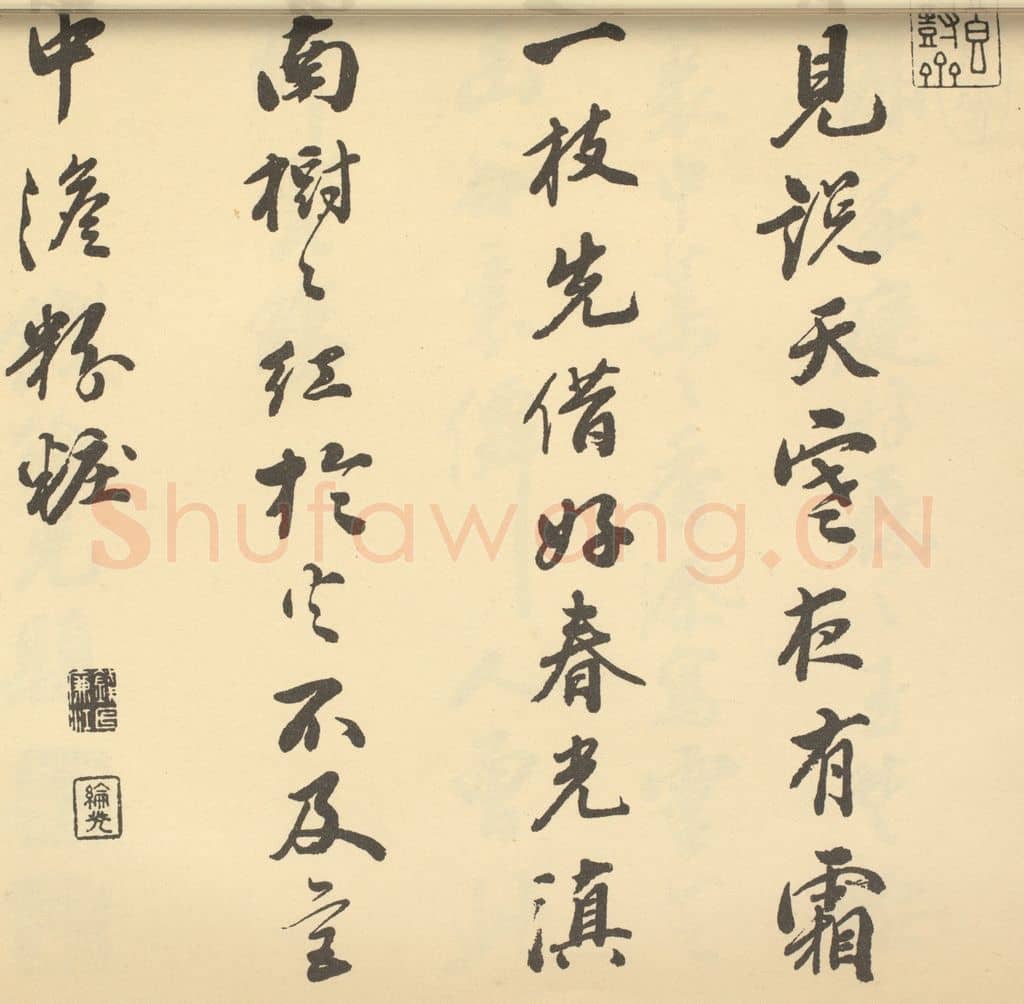 見說天寒夜有霜
一枝先借好春光滇
南樹〻紅於火不及
中澹粉粧
Shufawang.CN